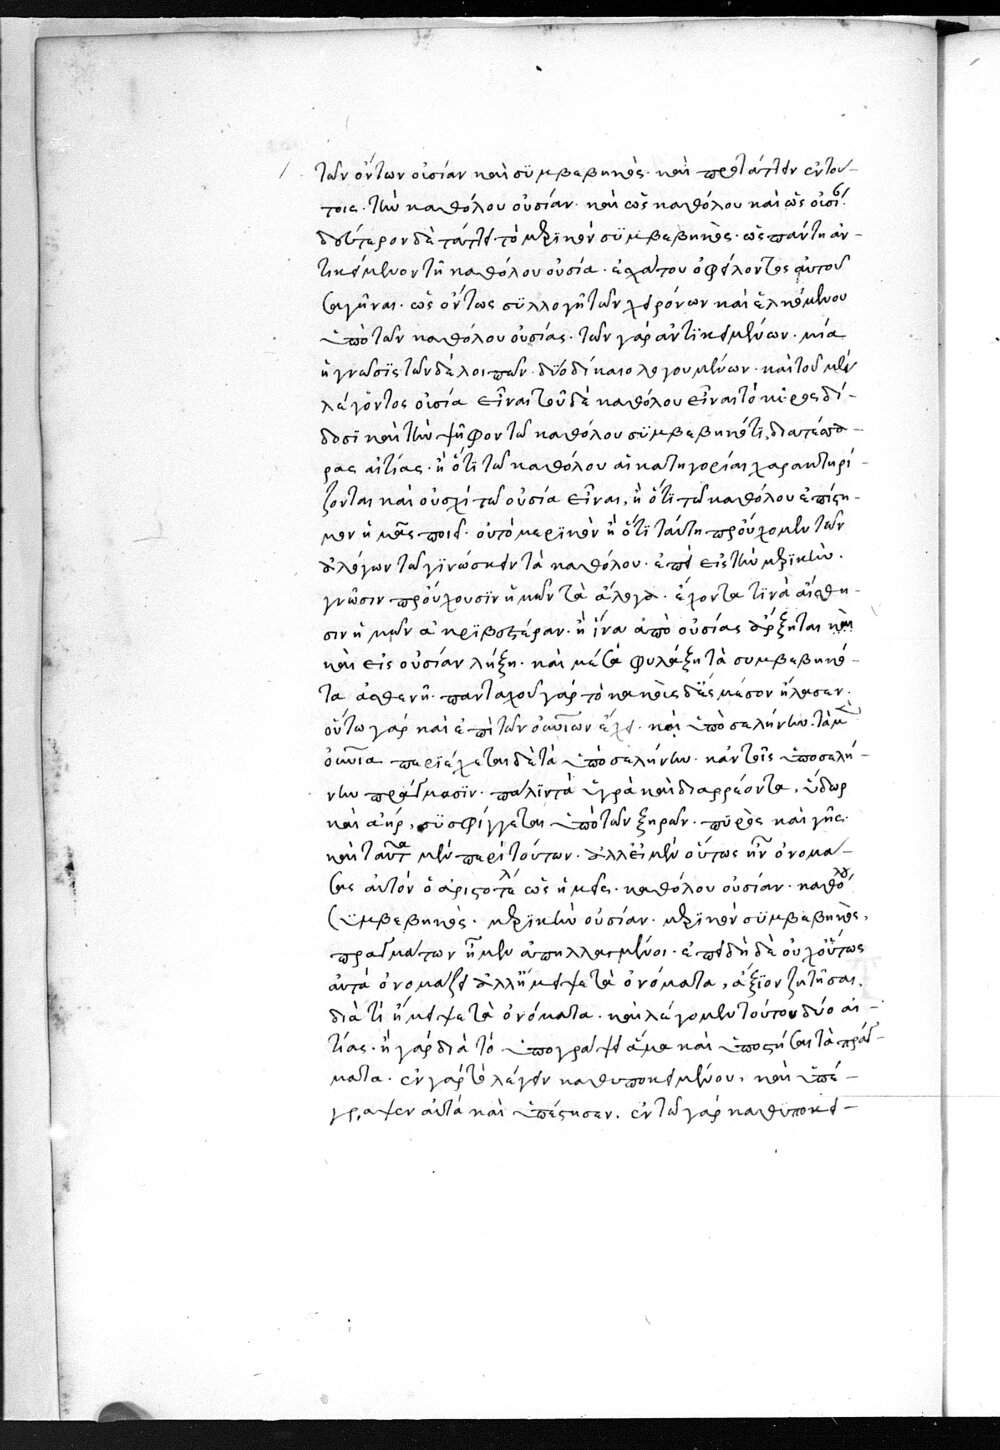 τῶν ὄντων οὐσίαν καὶ συμβεβηκὸς. καὶ προτάττει ἐν τού-
τοις. τὴν καθόλου οὐσίαν. καὶ ὡς καθόλου καὶ ὡς οὐσί
δεύτερον δὲ τάττει τὸ μερικὸν συμβεβηκὸς. ὡς πάντη ἀν-
τικείμενον τῆ καθόλου οὐσία. ὀφείλοντος αὐτοῦ
ὡς ὄντως συλλογῆ τῶν χειρόνων καὶ ἑλκομένου
ὑπὸ τῶν καθόλου οὐσίας. τῶν γὰρ ἀντικειμένων. μία
ἡ γνωσϊς τῶν δὲ λοιπῶν. δύο δικαιολογουμένων. καὶ τοῦ μὲν
λέγοντος οὐσία εἶναι τοῦ δὲ καθόλου εἶναι τὸ κῦρος δί-
δοσϊ καὶ τὴν ψῆφον τῶ καθόλου συμβεβηκότϊ, διὰ τέσσα-
ρας αἰτίας. ἢ ὅτϊ τῶ καθόλου αἱ κατηγορίαι χαρακτηρί-
ζονται καὶ οὐχὶ τῶ οὐσία εἶναι, ἢ ὅτϊ τῶ καθόλου ἐπιστή-
μον ἡμᾶς ποιεῖ. οὐ τὸ μερικὸν ἢ ὅτϊ ταύτη προὔχομεν τῶν
ἀλόγων τῶ γϊνώσκειν τὰ καθόλου. ἐπεὶ εἰς τὴν μερικὴν.
γνῶσιν προὔχουσϊν ἡμῶν τὰ ἄλογα. ἔχοντα τινὰ αἴσθη-
σιν ἡμῶν ἀκριβεστέραν. ἢ ἵνα ἀπὸ οὐσίας ἄρξηται καὶ
καὶ εἰς οὐσίαν λήξη. καὶ μέσα φυλάξη τὰ συμβεβηκό-
τα ἀσθενῆ. πανταχοῦ γὰρ τὸ κακὸν εἰς μέσον ἤλασεν.
οὕτω γὰρ καὶ ἐπὶ τῶν οὐνίων ἔχει. καὶ ὑπὸ σελήνην. τὰ μὲν
οὐνια περϊέχεται δὲ τὰ ὑπὸ σελήνην. κἀν τοῖς ὑποσελή-
νην πράγμασϊν. πάλιν τὰ ὑγρὰ καὶ διαρρέοντα, ὕδωρ
καὶ ἀὴρ, συσφίγγεται ὑπὸ τῶν ξηρῶν. πϋρὸς καὶ γῆς.
καὶ ταῦτα μὲν περὶ τούτων. ἀλλ' εἰ μὲν οὕτως ἦν ὀνομά-
σας αὐτὸν ὁ ἀριστοτέλ ὡς ἡμεῖς. καθόλου οὐσίαν. καθόλου
συμβεβηκὸς. μερικὴν οὐσίαν. μερϊκὸν συμβεβηκὸς,
πραγμάτων ἦμεν ἀπηλλαγμένοι. ἐπειδὴ δὲ οὐχ οὕτως
αὐτὰ ὀνομάζει ἀλλ' ἤμειψε τὰ ὀνόματα, ἄξϊον ζητῆσαι.
διὰ τί ἤμειψε τὰ ὀνόματα. καὶ λέγομεν τούτου δύο αἰ-
τίας. ἢ γὰρ διὰ τὸ ὑπογράψαι ἅμα καὶ ὑποστῆσαι τὰ πράγ-
ματα. ἐν γὰρ τῶ λέγειν καθ' ὑποκειμένου, καὶ ὑπέ-
γραψεν αὐτὰ καὶ ὑπέστησεν. ἐν τῶ γὰρ καθυποκει-